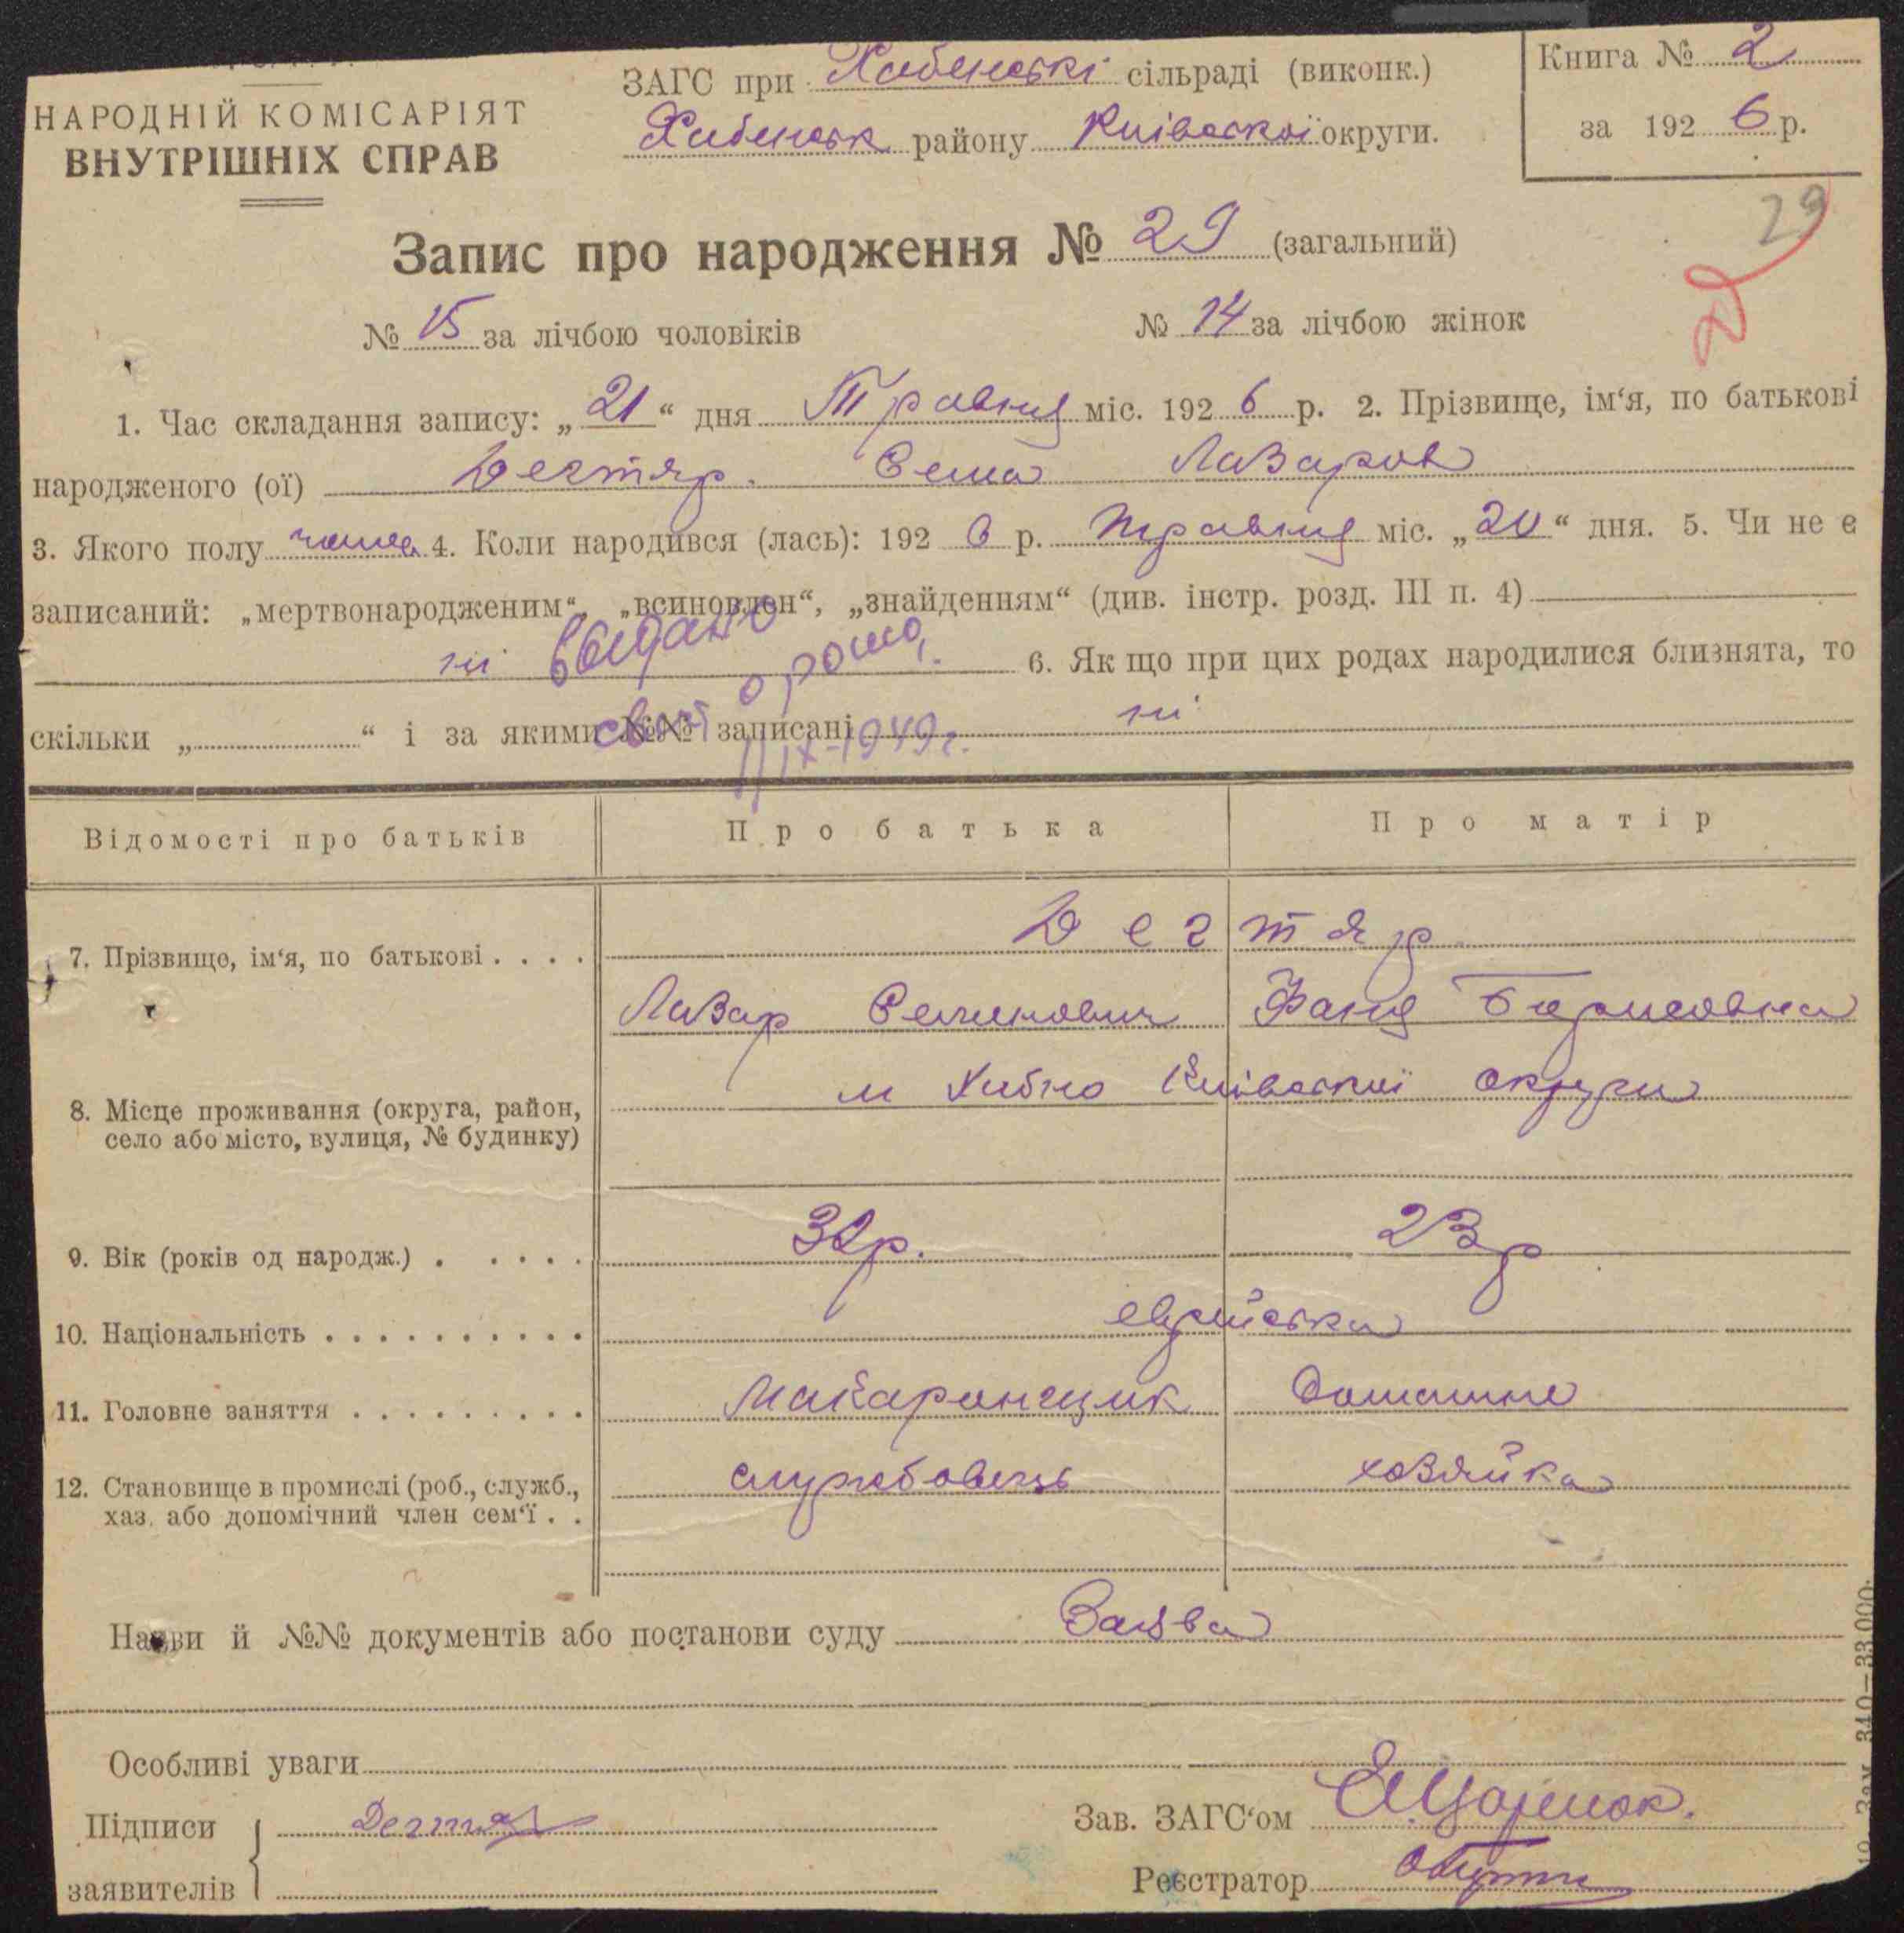 НАРОДНІЙ КОМІСАРІЯТ
ВНУТРІШНІХ СПРАВ
ЗАГС при Хабенські сільраді (виконк.)
Хабенськ району Київської округи.
Книга № 2
за 192 6 р.
29
Запис про народження № 29 (загальний)
№ 15 за лічбою чоловіків № 14 за лічбою жінок
1. Час складання запису: „ 21 “ дня Травня міс. 192 6 р. 2. Прізвище, ім‘я, по батькові
народженого (ої) Дегтяр. Сема Лазаров
3. Якого полу 4. Коли народився (лась): 192 6 р. травня міс. „ 20 “ дня. 5. Чи не є
записаний: „мертвонародженим“, „всиновлен“, „знайденням“ (див. інстр. розд. III п. 4)
ні выдано 6. Як що при цих родах народилися близнята, то
свит о рожд.
скільки „ “ і за якими №№ записані ні
11/IX-1949г.
Відомості про батьків Про батька Про матір
7. Прізвище, ім‘я, по батькові . . . . Дегтяр
Лазар Семенович Фаня Борисовна
8. Місце проживання (округа, район, м Хабно Київської округи
село або місто, вулиця, № будинку)
9. Вік (років од народж.) . . . . . 32р. 23р
10. Національність . . . . . . . . . . еврейська
11. Головне заняття . . . . . . . . . Макаронщик Домашне
12. Становище в промислі (роб., служб., службовець хозяйка
хаз. або допомічний член сем‘ї . .
Назви й №№ документів або постанови суду Заява
Особливі уваги
Підписи Дегтяр
заявителів
Зав. ЗАГС‘ом
Реєстратор
Зах. 340—33.000.